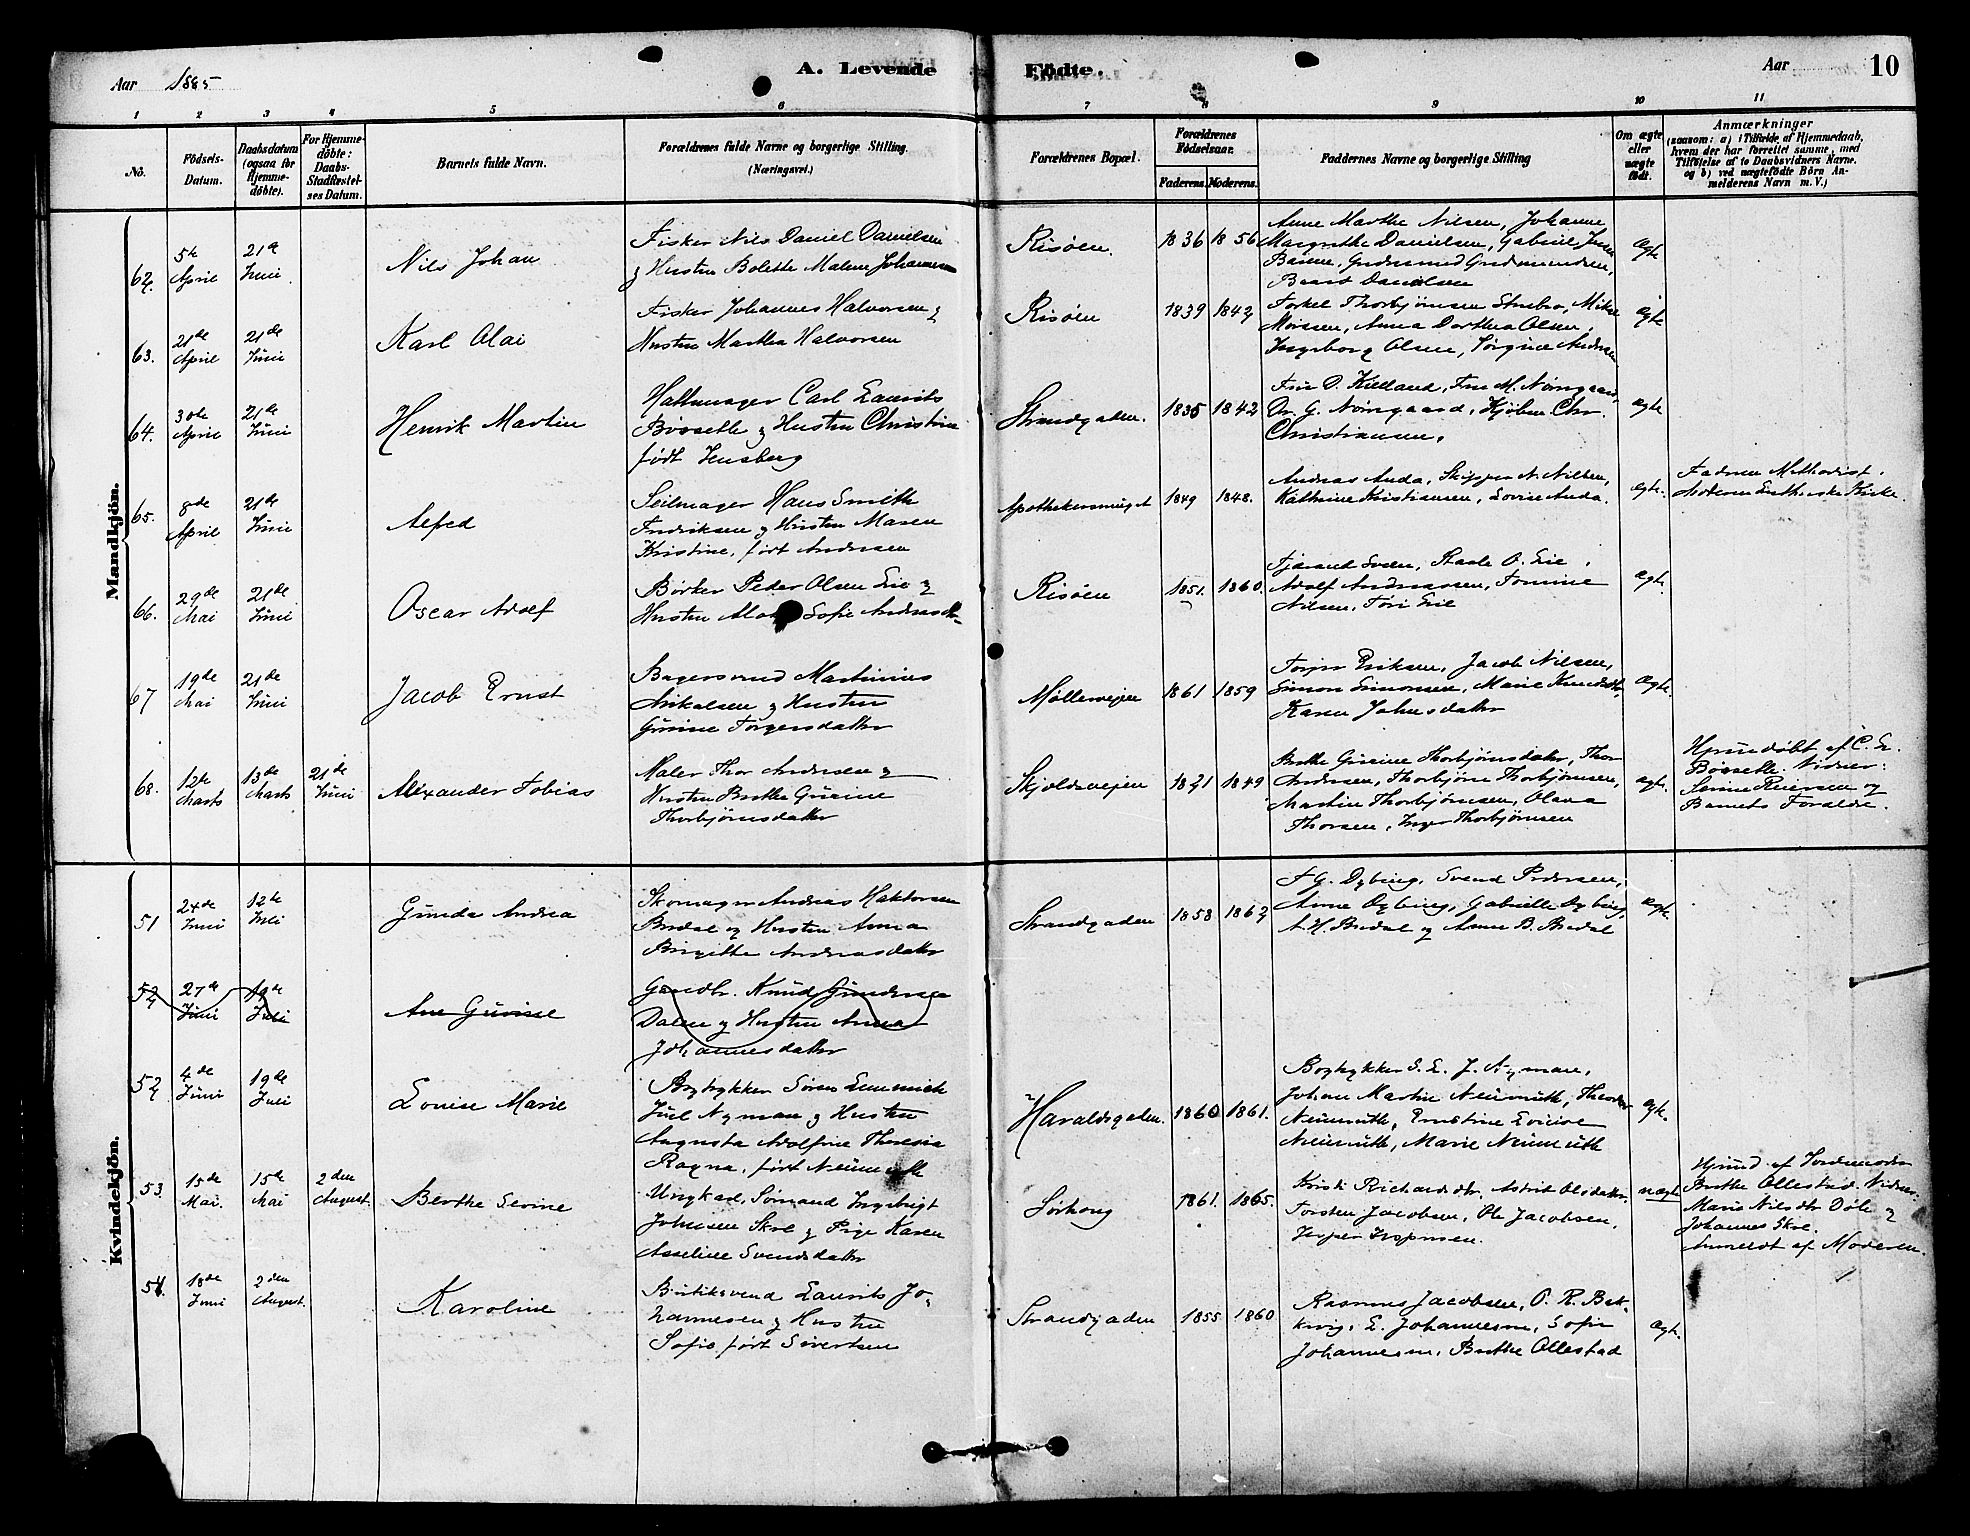 Aar 1885
A. Levende
Födte.
Aar
10
1 2 3 4 5 6 7 8 9 10 11
No.
Födsels-
Datum.
Daabsdatum
(ogsaa for
Hjemme-
döbte).
For Hjemme-
döbte:
Daabs-
Stadfæstel-
ses Datum.
Barnets fulde Navn.
Forældrenes fulde Navne og borgerlige Stilling.
(Næringsvei.)
Forældrenes Bopæl.
Forældrenes
Födselsaar.
Faderens. Moderens.
Faddernes Navne og borgerlige Stilling
Om ægte
eller
uægte
födt.
Anmærkninger
(saasom: a) i Tilfælde af Hjemmedaab,
hvem der har forrettet samme, med
Tilföielse af to Daabsvidners Navne.
og b) ved uægtefödte Börn An-
melderens Navn m. V.)
Mandkjön.
62.
5te
April
21de
Juni
Nils Johan
Fisker Nils Daniel Danielsen
& Hustru Bolette Malene Johannesen
Risöen.
1836 1856
Anne Marthe Nilsen, Johanne
Margrethe Danielsen, Gabriel
Gudmund Gudmundsen,
Danielsen
ægte
63.
21de
April
21de
Juni
Karl Olai
Fisker Johannes Halvorsen &
Hustru Martha Halvorsen
Risöen
1839 1842
Torkel Thorbjörnsen
Anna Dorthea Olsen,
Ingeborg Olsen, Andersen
ægte
64.
30te
April
21de
Juni
Henrik Martin
Hattemager Carl Laurits
Bössette & Hustru Christine
födt Jensberg
Strandgaden.
1835 1842
Fru D. Kielland, Fru M. Nörregaard,
Dr. G. Nörregaard, Kjöbm. Chr.
Christiansen.
ægte
65.
8de
April
21de
Juni
Alfred
Seilmager Hans Smith
Fredriksen & Hustru Maren
Kristine, födt Andersen
Apothekersmuget
1849 1848.
Andreas Anda, Skipper N. Nilsen,
Kathrine Kristiansen, Lovise Anda.
ægte.
Faderen Methodist.
Moderen Luthersk Kirke.
66.
29de
Mai
21de
Juni
Oscar Adolf
Börker Peder Olsen Lie &
Hustru Sofie Andreasdtr.
Risöen
1851. 1860.
Staale O. Lie,
Adolf Andreassen, Tomine
Nilsen, Töri Lie
ægte.
67
19de
Mai
21de
Juni
Jacob Ernst
Bagersvend Martinius
Mikalsen & Hustru
Gurine Torgersdatter
Möllerveien
1861 1859
Torger Eriksen, Jacob Nilsen,
Simon Simonsen, Marie Knudsdtr,
Karen Johnsdatter
Ægte.
68.
12te
Marts
13de
Marts
21de
Juni
Alexander Tobias
Maler Thor Andersen &
Hustru Berthe Gurine
Thorbjörnsdatter
Skjoldaveien
1821 1849
Berthe Gurine Thorbjörnsdatter, Thor
Andersen, Thorbjörn Thorbjörnsen,
Martin Thorbjörnsen, Olava
Thorsen, Inger Thorbjörnsen
ægte.
Hjemdöbt af C. L.
Bössette. Vidner:
Reiersen og
Barnets Foreldre.
Kvindekjön.
51
24de
Juni
12te
Juli
Gunda Andrea
Skomager Andreas Haktorsen
Bredal og Hustru Anna
Birgitte Andreasdatter
Strandgaden
1858 1862
F. G. Dybing, Svend Pedersen,
Anne Dybing, Gabrielle Dybing,
A. H. Bredal & Anne B. Bredal
ægte.
52
27de
Juni
19de
Juli
Ane Gurine
Gaardbr. Knud Gundersen
Dalen & Hustru Anna
Johannesdatter
52
4de
Juni
19de
Juli
Louise Marie
Bogtrykker Sören Lemmich
Juel Nyman & Hustru
Augusta Adolfine Theresia
Ragna, födt Neumuth
Haraldsgaden.
1860 1861.
Bogtrykker S. L. J. Nyman,
Johan Martin Neumuth, Theodor
Neumuth, Ernstine Lovise
Neumuth, Marie Neumuth
ægte.
53.
15de
Mai.
15de
Mai
2den
August.
Berthe Serine
Ungkarl, Sömand Ingebrigt
Johnsen Skre & Pige Karen
Asseline Svendsdatter
Sörhoug
1861. 1865.
Kristi Richardsdtr. Astrid Olsdatter.
Torsten Jacobsen, Ole Jacobsen,
Jesper Jespersen.
uægte
Hjemd. af Jordemoder
Berthe Ollestad. Vidner.
Marie Nilsdtr Döle &
Johannes Skre.
Anmeldt af Moderen.
54.
18de
Juni
2den
August.
Karoline
Butiksvend Laurits Jo-
hannesen & Hustru
Sofie födt Sivertsen
Strandgaden
1855 1860
Rasmus Jacobsen, O. R. Bak-
kevig, L. Johannesen, Sofie
Johannesen, Berthe Ollestad
Ægte.